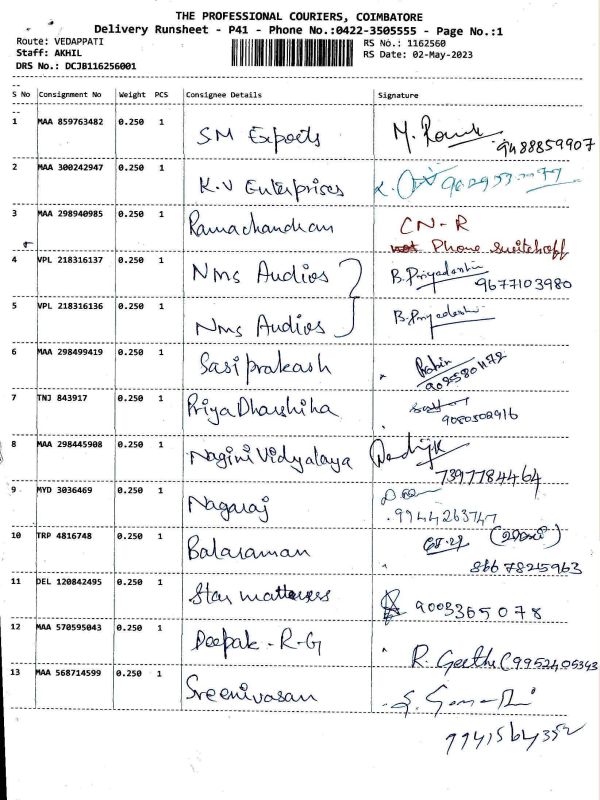 THE PROFESSIONAL COURIERS, COIMBATORE
Delivery Runsheet - P41 - Phone No.:0422-3505555 - Page No.:1
Route: VEDAPPATI
RS No.: 1162560
Staff: AKHIL
RS Date: 02-May-2023
DRS No.: DCJB116256001
S No Consignment No Weight PCS Consignee Details Signature
1 MAA 859763482 0.250 1 SM Exports M.
9488859907
2 MAA 300242947 0.250 1 K.V Enterprises
3 MAA 298940985 0.250 1 Ramachandran CN-R
Phone switchoff
4 VPL 218316137 0.250 1 Nms Audios B. Priyadarshini
9677103980
5 VPL 218316136 0.250 1 Nms Audios B. Priyadarshini
6 MAA 298499419 0.250 1 Sasiprakash
7 TNJ 843917 0.250 1 PriyaDharshiha
9080502916
8 MAA 298445908 0.250 1 Nagini Vidyalaya
7397784464
9 MYD 3036469 0.250 1 Nagaraj
9944263747
10 TRP 4816748 0.250 1 Balaraman
8667825963
11 DEL 120842495 0.250 1 Star mattresses 9003365078
12 MAA 570595043 0.250 1 Deepak-R-G
R. Geetha (9952405343
13 MAA 568714599 0.250 1 Sreenivasan